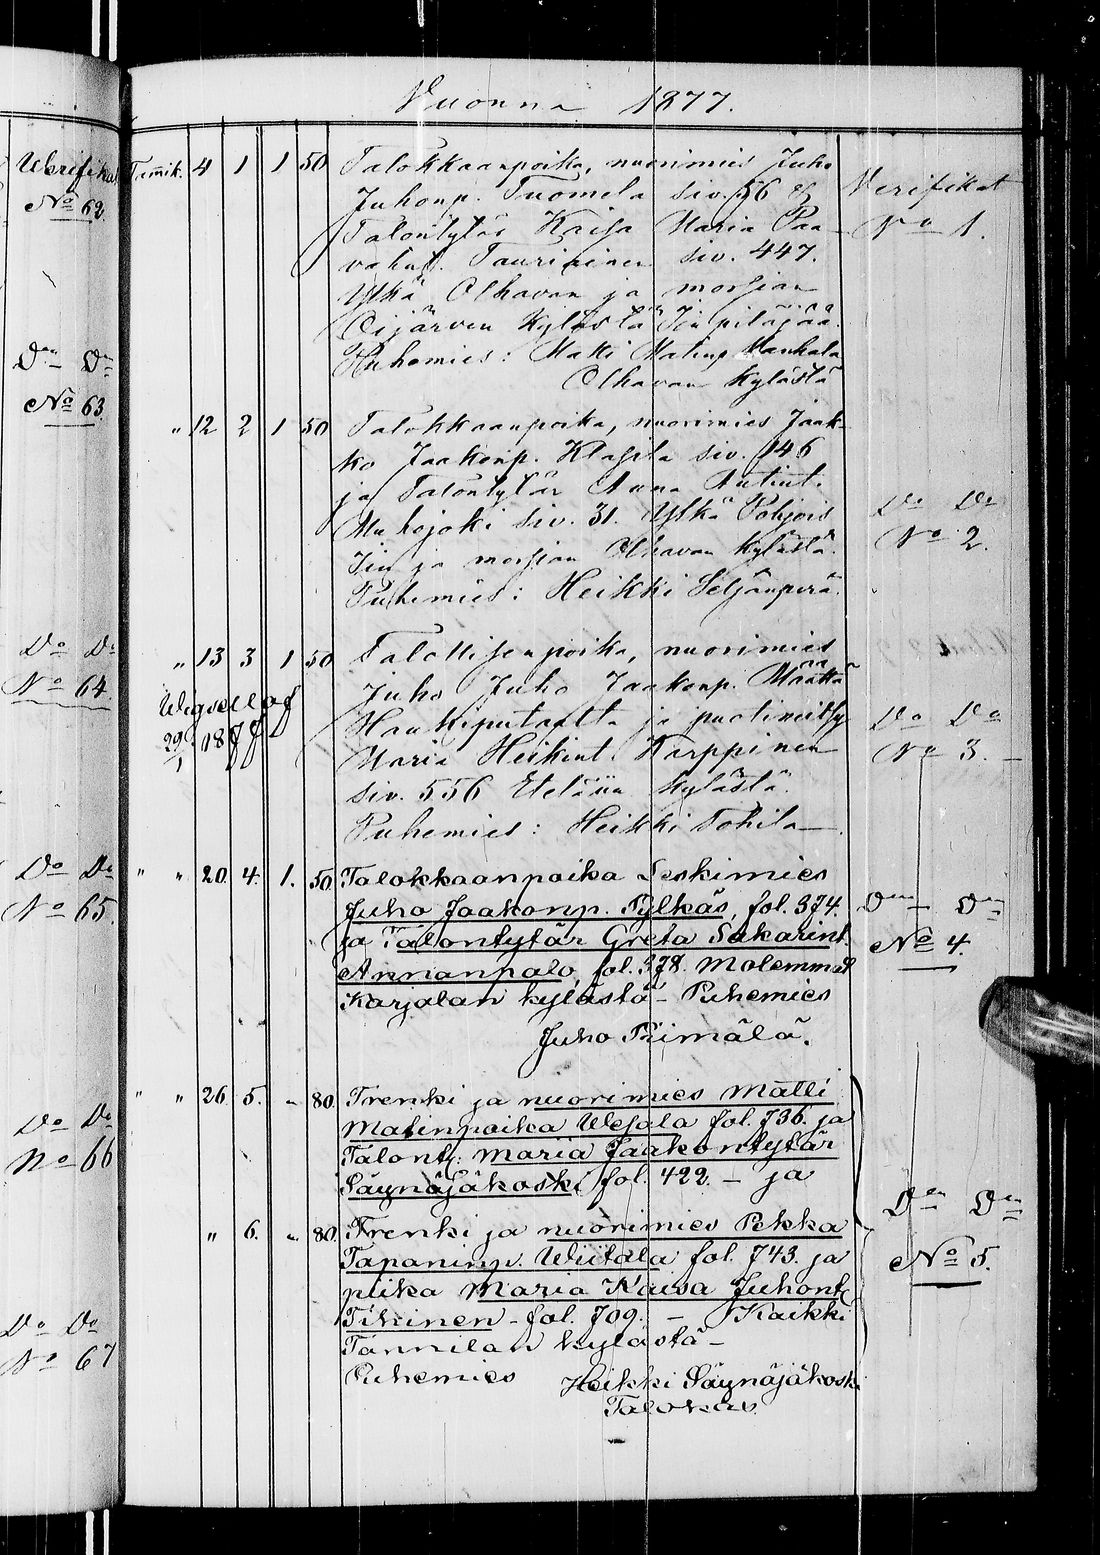 Vuonna 1877.
Verifikat
No 62.
Do Do
No 63.
Do Do
No 64.
Do Do
No 65.
Do Do
No 66
Do Do
No 67
Tamik. 4 1 1 50 Talokkaanpoika, nuorimies Juho
Juhonp. Tuomela siv. 56 &
Talontytär Kaisa Maria Paa-
valint. Tauriainen siv. 447.
Ylkä Olhavan ja morsian
Oijärven Kylästä Iin pitäjää.
Puhemies: Matti Matinp. Manhala
Olhavan Kylästä
Verifikat
No 1.
" 12 2 1 50 Talokkaanpoika, nuorimies Jaak-
ko Jaakonp. Klasila siv. 146
ja Talontytär Anna Antint.
Muhojoki siv. 31. Ylkä Pohjois
Iin ja morsian Olhavan Kylästä.
Puhemies: Heikki Seljänperä.
Do Do
No 2.
" 13 3 1 50 Talollisenpoika, nuorimies
Juho Juho Jaakonp. Määttä
Haukiputaalta ja
Maria Heikint. Karppinen
siv. 556 Eteläiin Kylästä.
Puhemies: Heikki Tohila
29/1 1877
Do Do
No 3.
" " 20. 4. 1. 50 Talokkaanpoika Leskimies
Juho Jaakonp. Pylkäs, fol. 374.
ja Talontytär Greta Sakarint.
Annanpalo, fol. 378. Molemmat
Karjalan kylästä - Puhemies
Juho Piimälä.
Do Do
No 4.
" " 26. 5. " 80. Trenki ja nuorimies Matti
Matinpoika Wejola fol. 736. ja
Talont: Maria Jaakontytär
Säynäjäkoski fol. 422. - ja
" 6. " 80. Trenki ja nuorimies Pekka
Tapaninp. Wiitala fol. 743. ja
piika Maria Kaisa Juhont.
Tihinen - fol. 709. - Kaikki
Tannilan kylästä -
Puhemies Heikki Säynäjäkoski
Talokas.
Do Do
No 5.